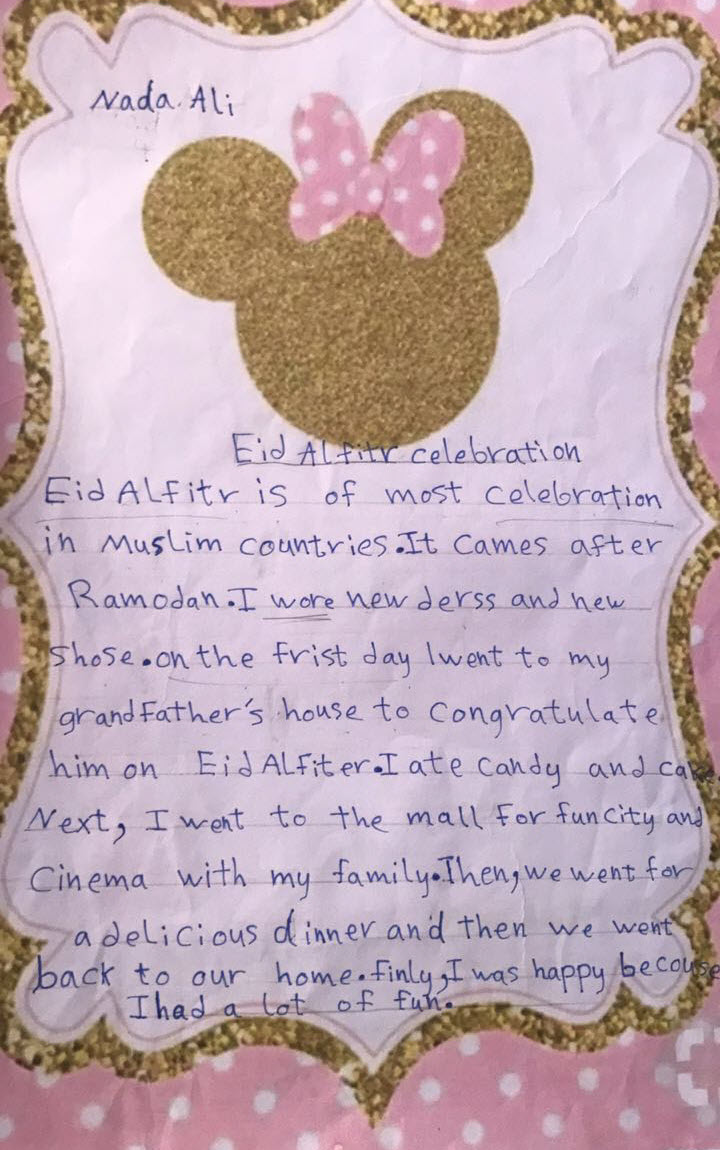 Nada Ali
Eid Alfitr celebration
Eid Alfitr is of most celebration
in Muslim countries. It cames after
Ramodan. I wore new derss and new
shose. on the frist day I went to my
grandfather's house to congratulate
him on Eid Alfiter. I ate candy and cake
Next, I went to the mall for fun city and
Cinema with my family. Then, we went for
a delicious dinner and then we went
back to our home. finly, I was happy becouse
I had a lot of fun.